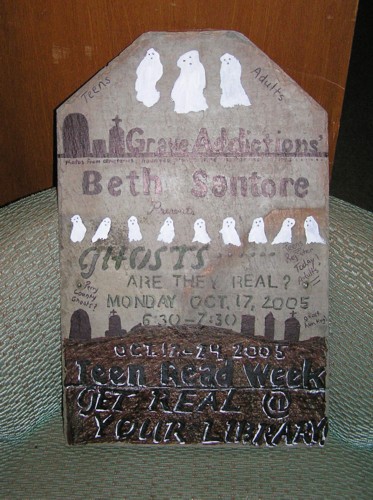 Teens
Adults
Grave Addictions'
Beth Santore
Presents
GHOSTS
ARE THEY REAL?
MONDAY OCT. 17, 2005
6:30-7:30
OCT. 17-24, 2005
Teen Read Week
GET REAL @
YOUR LIBRARY